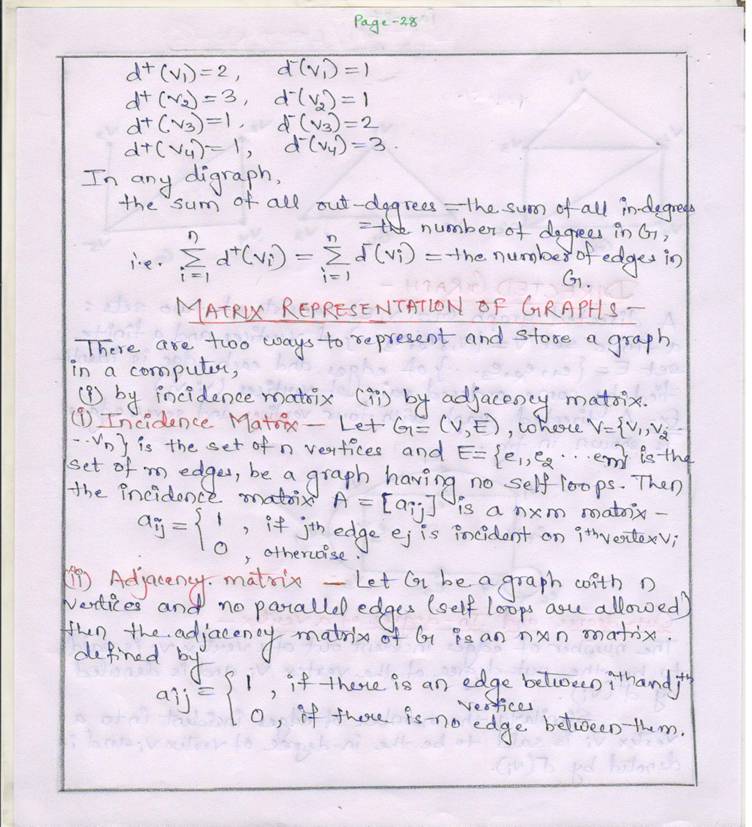 Page-28
d⁺(v₁)=2, d⁻(v₁)=1
d⁺(v₂)=3, d⁻(v₂)=1
d⁺(v₃)=1, d⁻(v₃)=2
d⁺(v₄)=1, d⁻(v₄)=3.
In any digraph,
the sum of all out-degrees = the sum of all in-degrees
= the number of degrees in G,
i.e. n Σ i=1 d⁺(vi) = n Σ i=1 d⁻(vi) = the number of edges in
G.
MATRIX REPRESENTATION OF GRAPHS -
There are two ways to represent and store a graph
in a computer,
(i) by incidence matrix (ii) by adjacency matrix.
(i) Incidence Matrix - Let G = (V,E), where V={v₁,v₂-
...vn} is the set of n vertices and E={e₁,e₂...em} is the
set of m edges, be a graph having no self loops. Then
the incidence matrix A = [aij] is a nxm matrix -
aij = { 1, if jth edge ej is incident on ith vertex vi
0, otherwise.
(ii) Adjacency matrix - Let G be a graph with n
vertices and no parallel edges (self loops are allowed)
then the adjacency matrix of G is an nxn matrix.
defined if
aij = { 1, if there is an edge between ith and jth
vertices
0, if there is no edge between them.